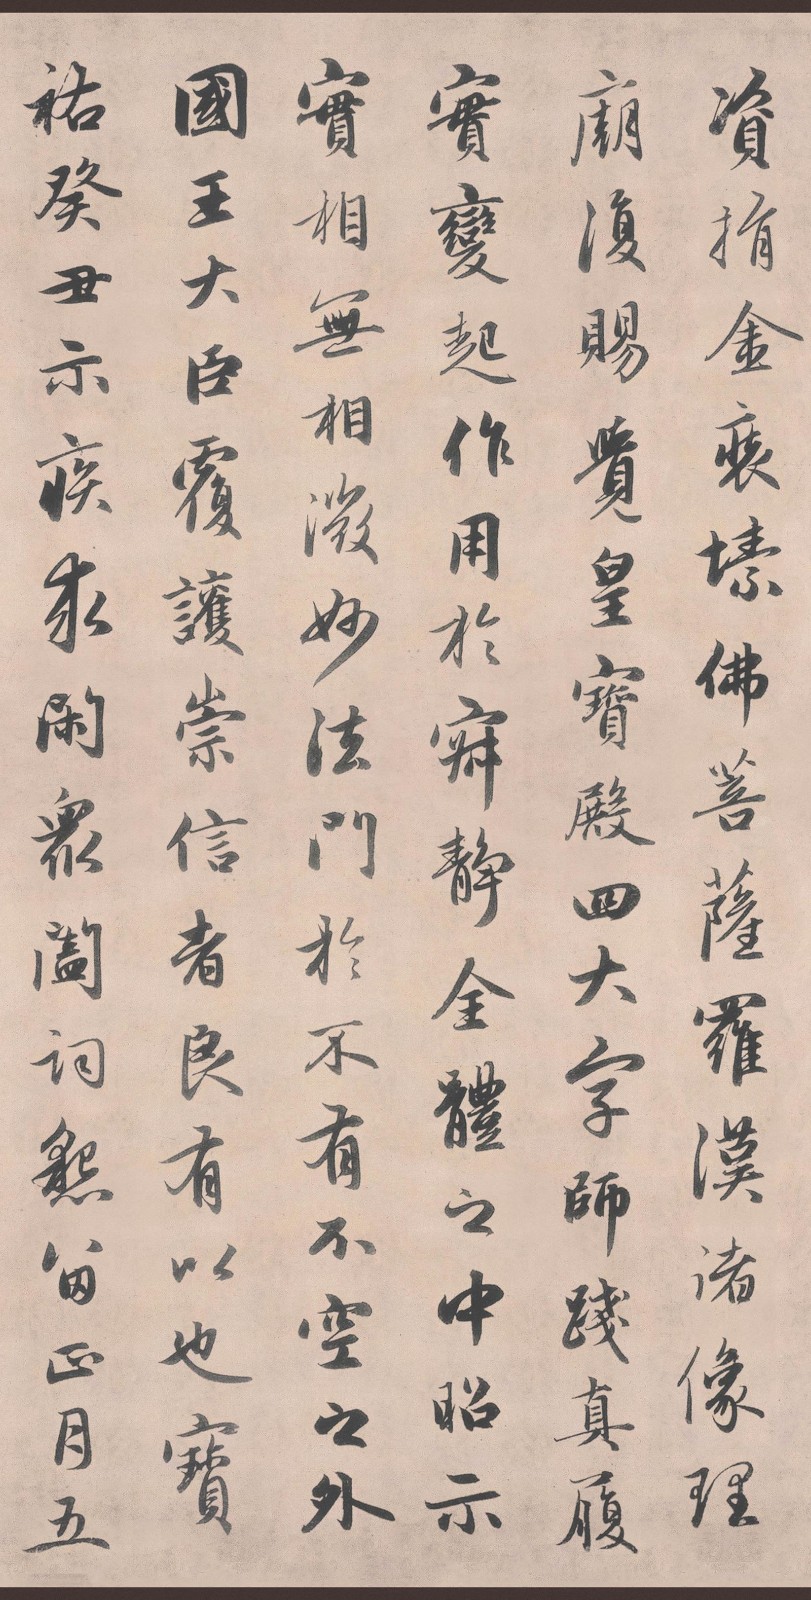 資捐金裒塐佛菩薩羅漢諸像理
廟復賜覺皇寶殿四大字師踐真履
實變起作用於寂靜全體之中昭示
實相無相微妙法門於不有不空之外
國王大臣覆護崇信者良有以也寶
祐癸丑示疾求閑衆闔詞懇留正月五